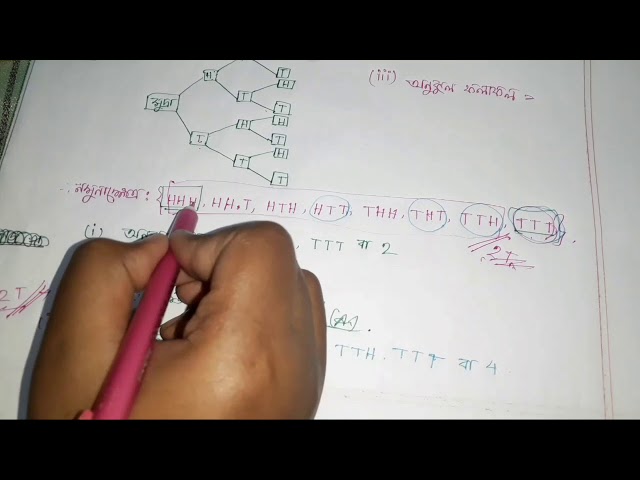 H T
T H
মুদ্রা T
H H
T T
T H
T
(iii) অনুকূল ফলাফল =
∴ নমুনাক্ষেত্র : {HHH, HHT, HTH, HTT, THH, THT, TTH, TTT}
(i) TTT বা 2
2T
2T
TTH, TTT বা 4